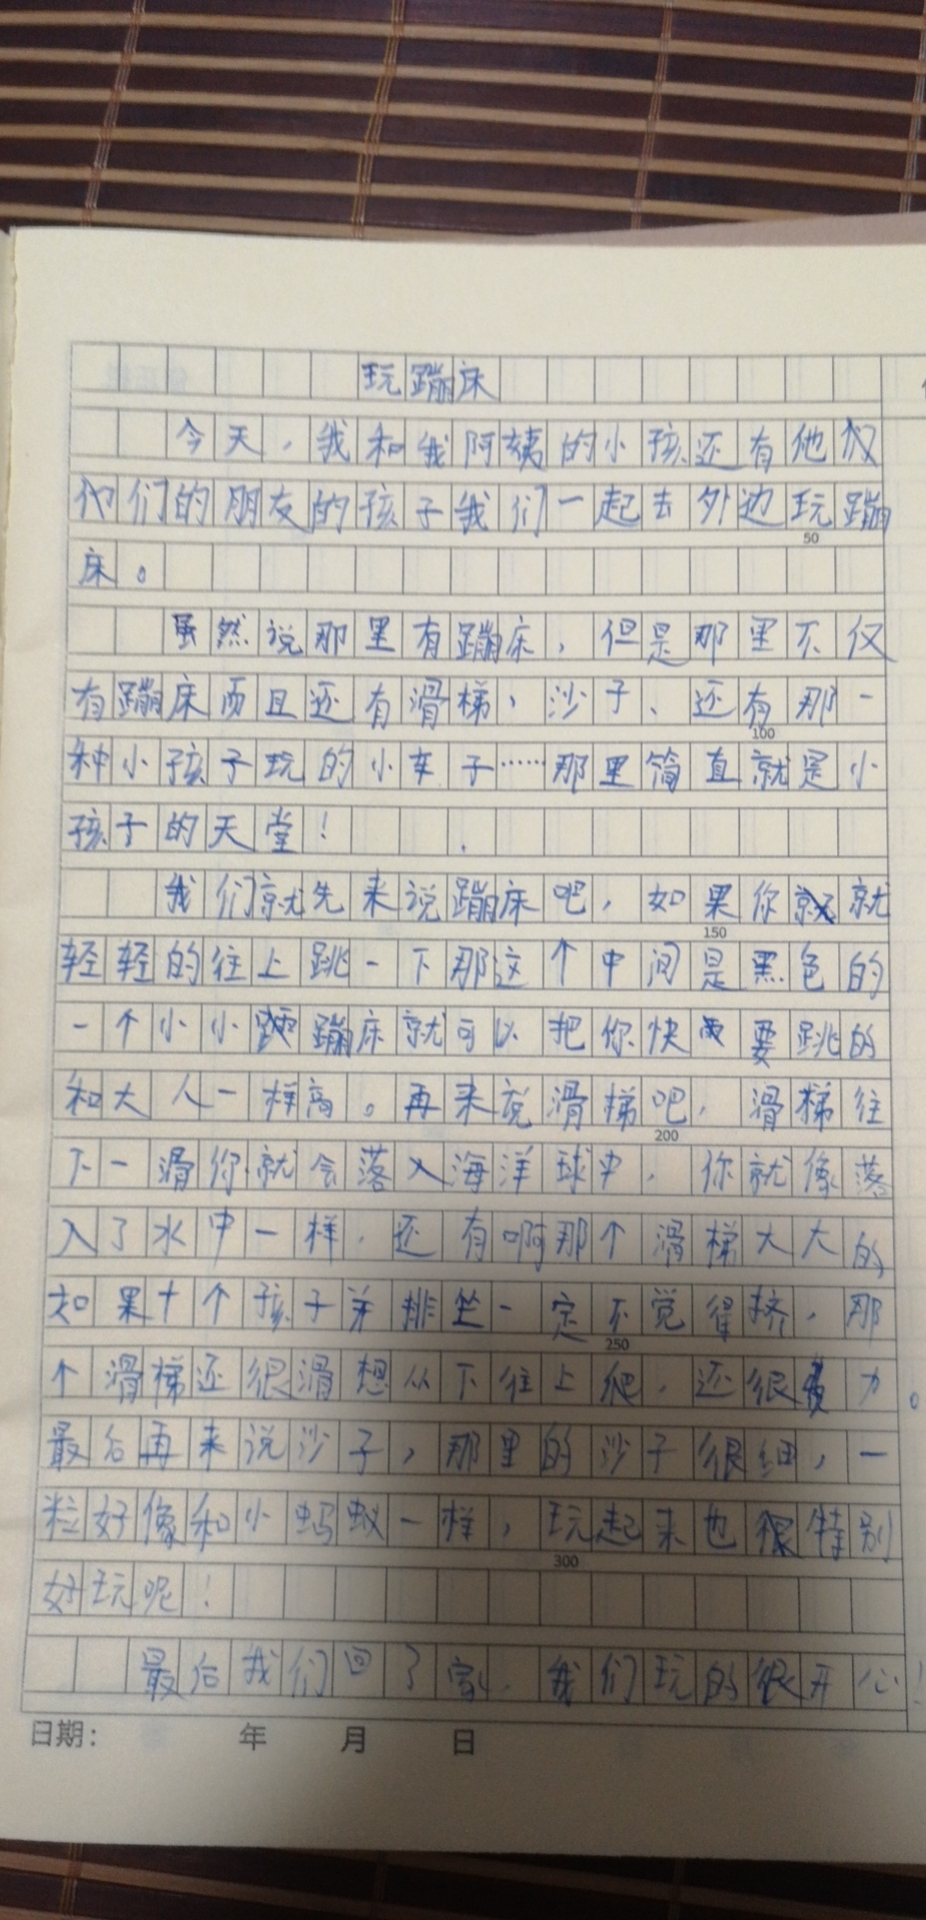 玩蹦床
今天，我和我阿姨的小孩还有他
他们的朋友的孩子我们一起去外边玩蹦
50
床。
虽然说那里有蹦床，但是那里不仅
有蹦床而且还有滑梯，沙子、还有那一
100
种小孩子玩的小车子……那里简直就是小
孩子的天堂！
我们就先来说蹦床吧，如果你就
150
轻轻的往上跳一下那这个中间是黑色的
一个小小蹦床就可以把你快要跳的
和大人一样高。再来说滑梯吧，滑梯往
200
下一滑你就会落入海洋球中，你就像落
入了水中一样，还有啊那个滑梯大大的
如果十个孩子并排坐一定不觉得挤，那
250
个滑梯还很滑想从下往上爬，还很费力。
最后再来说沙子，那里的沙子很细，一
粒好像和小蚂蚁一样，玩起来也很特别
300
好玩呢！
最后我们回了家，我们玩的很开心！
日期： 年 月 日